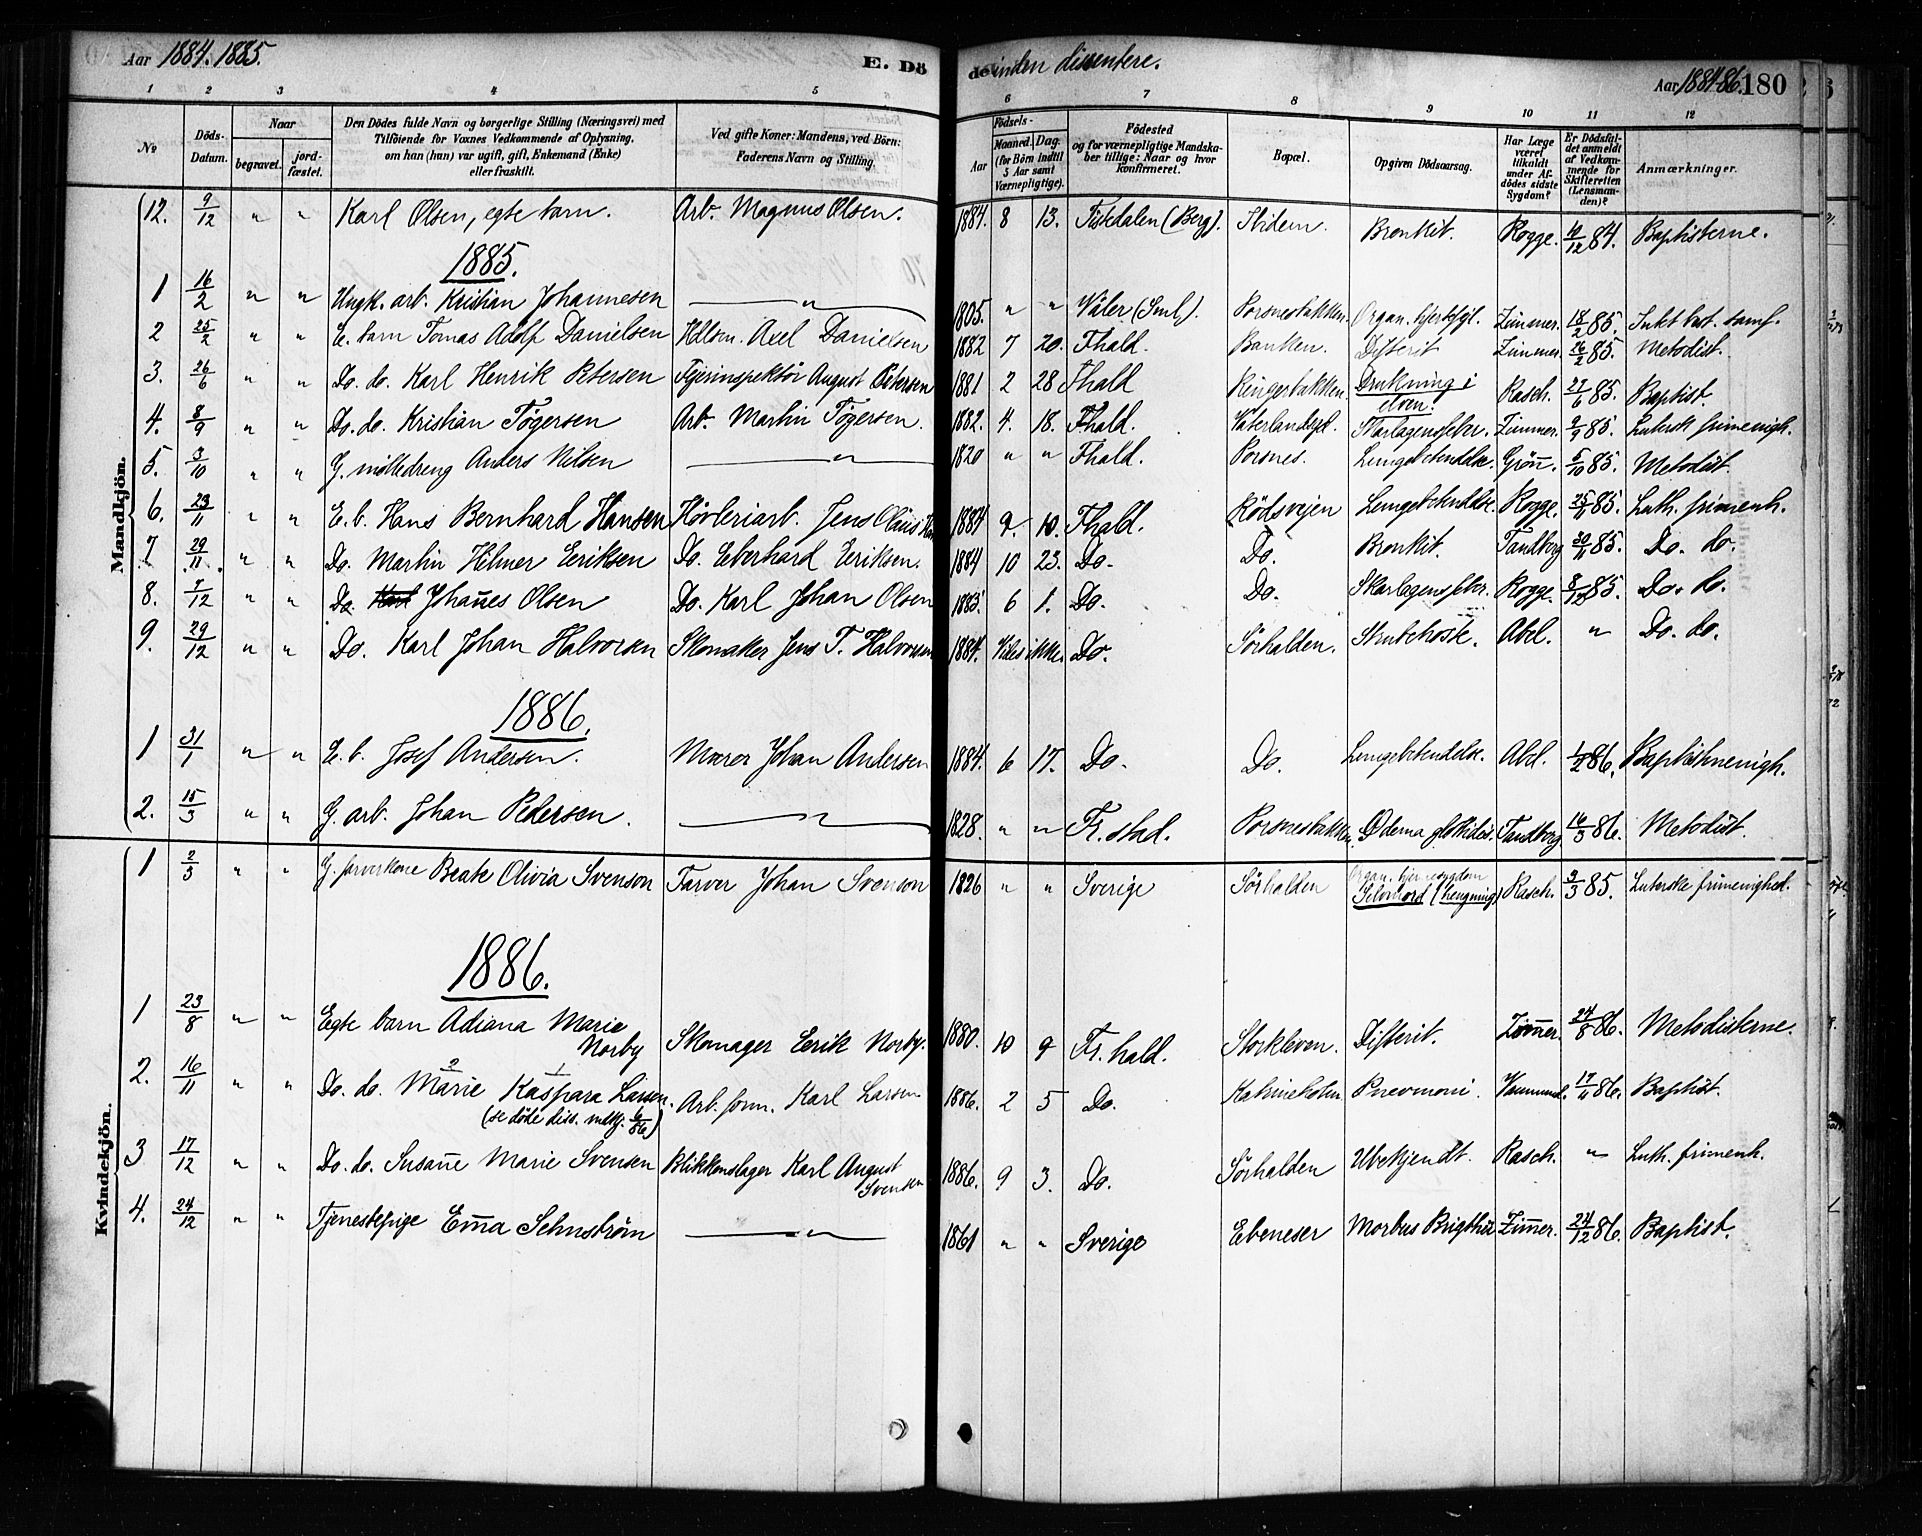 Aar 1884. 1885. E. Dö
de inden dissentere. Aar 1884-86. 180
1 2 3 4 5 6 7 8 9 10 11 12
No Döds-Datum. Naar begravet. jord-fæstet. Den Dödes fulde Navn og borgerlige Stilling (Næringsvei) med Tilföiende for Voxnes Vedkommende af Oplysning, om han (hun) var ugift, gift, Enkemand (Enke) eller fraskilt. Ved gifte Koner: Mandens, ved Börn: Faderens Navn og Stilling. Födsels- Aar Maaned. Dag. (for Börn indtil 5 Aar samt Værnepligtige). Födested og for værnepligtige Mandskaber tillige: Naar og hvor Konfirmeret. Bopæl. Opgiven Dödsaarsag. Har Læge været tilkaldt under Afdödes sidste Sygdom? Er Dödsfaldet anmeldt af Vedkommende for Skifteretten (Lensmanden)? Anmærkninger.
Mandkjön.
12. 9/12 " " Karl Olsen, egte barn. Arb. Magnus Olsen. 1884. 8 13. Tistedalen (Berg). Ibidem. Bronkit. Rogge. 10/12 84. Baptisterne.
1885.
1 16/2 " " Ungk. arb. Kristian Johannesen " 1805. " " Våler (Sml). Porsnesbakken. Organ. hjertefejl. Zimmer. 18/2 85.
2 25/2 " " E. barn Tomas Adolf Danielsen Axel Danielsen 1882 7 20. Fhald. Banken. Difterit Zimmer. 26/2 85. Metodist.
3. 26/6 " " Do. do. Karl Henrik Petersen Fejerinspektör August Petersen 1881 2 28 Fhald Ringerbakken. Drukning i elven. Rasch. 27/6 85. Baptist.
4. 8/9 " " Do. do. Kristian Tögersen Arb. Martin Tögersen. 1882. 4. 18. Fhald. Skarlagensfeber. Zimmer. 9/9 85. Luthersk frimenigh.
5. 3/10 " " G. mölledreng Anders Nilsen " 1820 " " Fhald. Porsnes. Lungebetendelse. Grönn. 5/10 85. Metodist.
6. 23/11 " " E. b. Hans Bernhard Hansen Hövleriarb. Jens Olaus 1884 9. 10. Fhald. Rödsvejen Lungebetendelse. Rogge. 25/11 85. Luth. frimenh.
7. 29/11 " " Do. Martin Hilmer Eeriksen Do. Eberhard Eeriksen. 1884 10 23. Do. Do. Bronkit. Tandberg 30/11 85. Do. do.
8. 7/12 " " Do. Karl Johannes Olsen Do. Karl Johan Olsen 1883 6 1. Do. Do. Skarlagensfeber. Rogge. 8/12 85. Do. do.
9. 29/12 " " Do. Karl Johan Halvorsen Skomaker Jens T. Halvorsen 1884. Vides ikke. Do. Sörhalden. Strubehoste. Abel. " Do. do.
1886.
1 31/1 " " E. b. Josef Andersen. Murer Johan Andersen 1884. 6 17. Do. Do. Lungebetendelse. Abel. 1/2 86. Baptistmenigh.
2. 15/3 " " G. arb. Johan Pedersen. " 1828. " " Fr. stad. Porsnesbakken. Ødema glottidis. Tandberg 16/3 86. Metodist.
Kvindekjön.
1 2/3 " " G. farverkone Beate Olivia Svenson Farver Johan Svenson 1826 " " Sverige Sörhalden Organ. hjernesygdom Selvmord (hengning) Rasch. 3/3 85. Luterske frimenighed.
1886.
1 23/8 " " Egte barn Adiana Marie Norby Skomager Eerik Norby. 1880. 10 9 Fr. hald. Storkleven. Difterit. Zimmer. 24/8 86. Metodisterne.
2. 16/11 " " Do. do. Marie Kaspara Larsen. Arb. form. Karl Larsen. 1886. 2 5 Do. Katrineholm Pnevmoni. 17/11 86. Baptist.
(se döde diss. mdkj. 6/86)
3 17/12 " " Do. do. Susanne Marie Svensen Blikkenslager Karl August Svensen 1886. 9 3. Do. Sörhalden Ubekjendt. Rasch. " Luth. frimenh.
4. 24/12 " " Tjenestepige Emma Sehnström " 1861 " " Sverige Ebeneser Morbus Brigthii Zimmer. 24/12 86. Baptist.